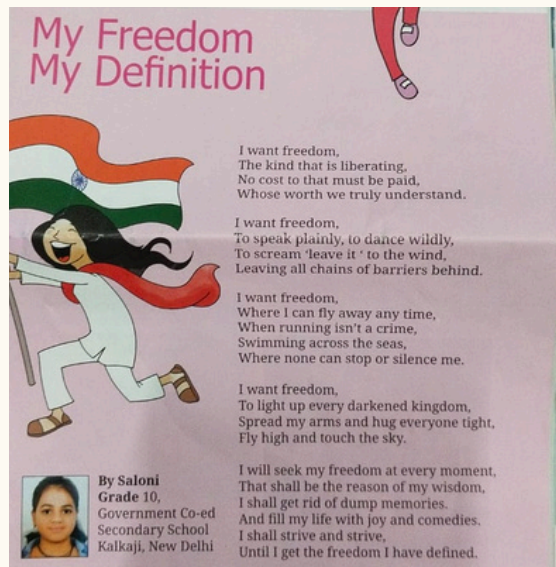 My Freedom
My Definition
I want freedom,
The kind that is liberating,
No cost to that must be paid,
Whose worth we truly understand.
I want freedom,
To speak plainly, to dance wildly,
To scream ‘leave it ‘ to the wind,
Leaving all chains of barriers behind.
I want freedom,
Where I can fly away any time,
When running isn't a crime,
Swimming across the seas,
Where none can stop or silence me.
I want freedom,
To light up every darkened kingdom,
Spread my arms and hug everyone tight,
Fly high and touch the sky.
I will seek my freedom at every moment,
That shall be the reason of my wisdom,
I shall get rid of dump memories.
And fill my life with joy and comedies.
I shall strive and strive,
Until I get the freedom I have defined.
By Saloni
Grade 10,
Government Co-ed
Secondary School
Kalkaji, New Delhi